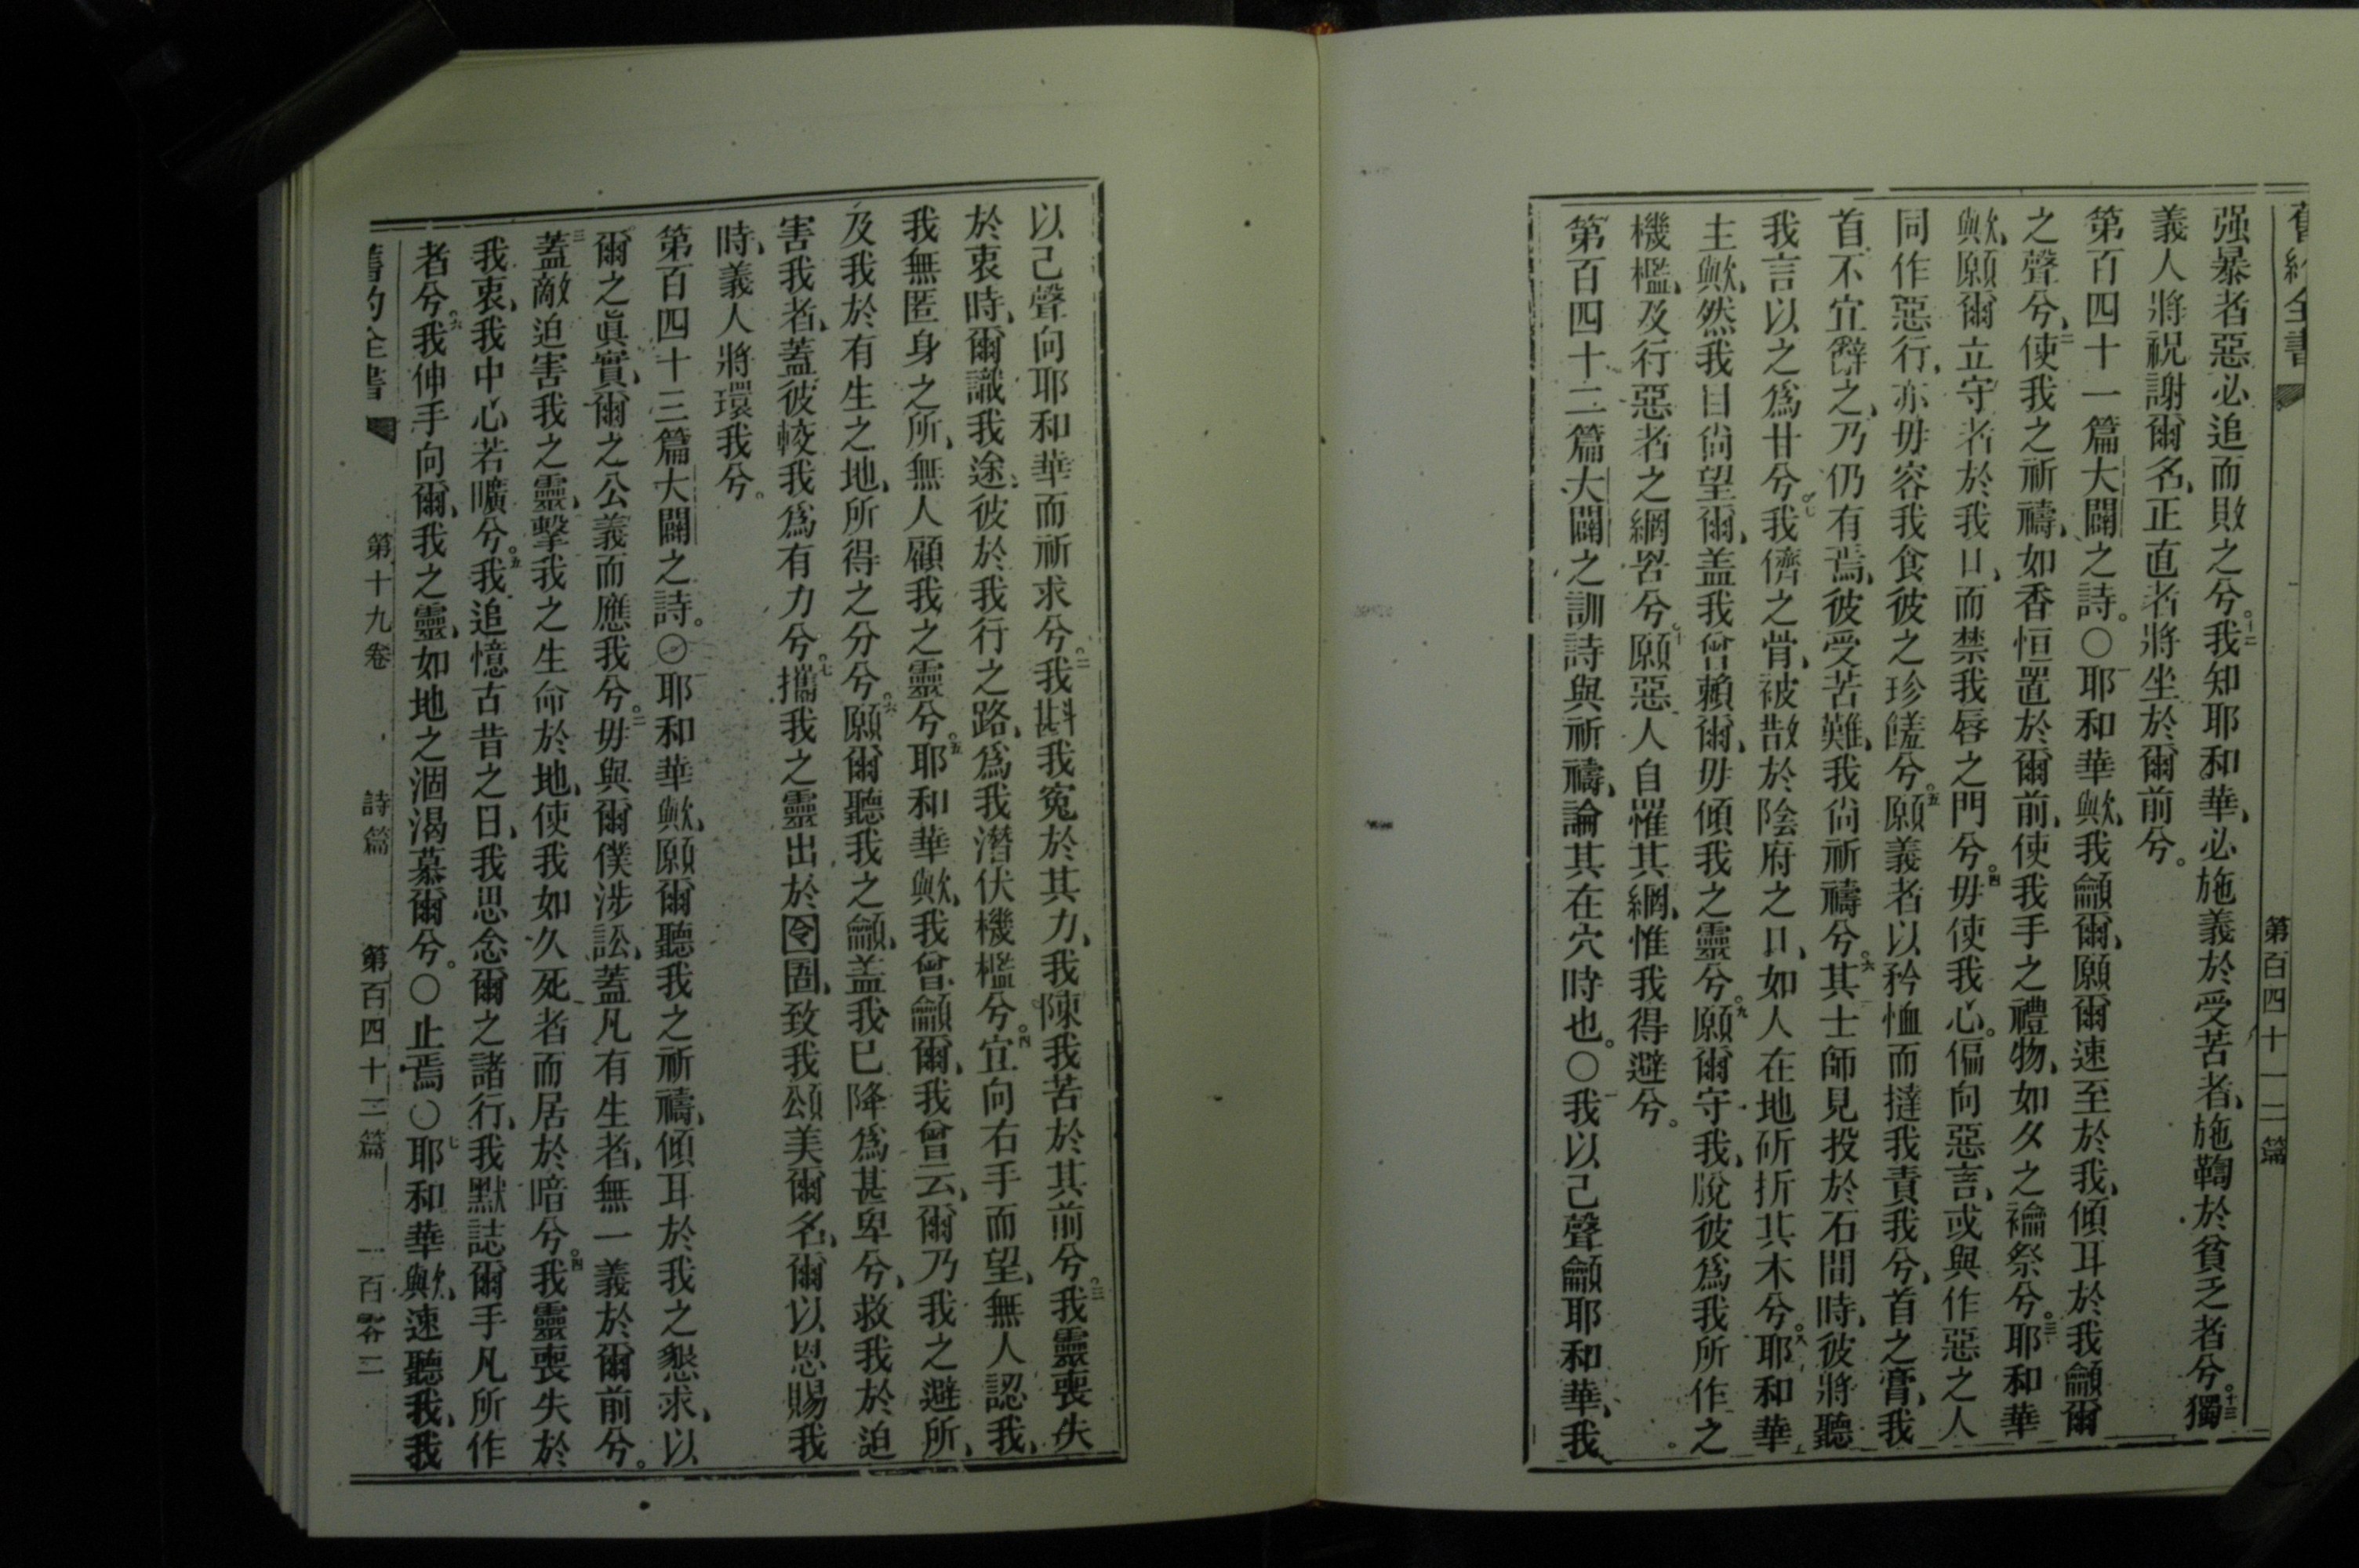 舊約全書 第百四十一二篇
强暴者惡必追而敗之兮。十二我知耶和華、必施義於受苦者、施鞫於貧乏者兮。十三獨
義人將祝謝爾名、正直者將坐於爾前兮。
第百四十一篇大闢之詩。○一耶和華歟、我龥爾、願爾速至於我、傾耳於我龥爾
之聲兮、二使我之祈禱、如香恒置於爾前、使我手之禮物、如夕之禴祭兮。三耶和華
歟、願爾立守者於我口、而禁我唇之門兮。四毋使我心。偏向惡言、或與作惡之人
同作惡行、亦毋容我食彼之珍饈兮。五願義者以矜恤而撻我責我兮、首之膏、我
首不宜辭之、乃仍有焉、彼受苦難、我尙祈禱兮。六其士師見投於石間時、彼將聽
我言以之爲甘兮。七我儕之骨、被散於陰府之口、如人在地斫折其木兮。八耶和華
主歟、然我目尙望爾、盖我曾賴爾、毋傾我之靈兮。九願爾守我、脫彼爲我所作之
機檻、及行惡者之網罟兮。十願惡人自罹其網、惟我得避兮。
第百四十二篇大闢之訓詩與祈禱、論其在穴時也。○一我以己聲龥耶和華、我
以己聲向耶和華而祈求兮。二我斟我寃於其力、我陳我苦於其前兮。三我靈喪失
於衷時、爾識我途、彼於我行之路、爲我潛伏機檻兮。四宜向右手而望、無人認我、
我無匿身之所、無人顧我之靈兮。五耶和華歟、我曾龥爾、我曾云、爾乃我之避所、
及我於有生之地、所得之分兮。六願爾聽我之龥、盖我已降爲甚卑兮、救我於迫
害我者、蓋彼較我爲有力兮。七攜我之靈出於囹圄、致我頌美爾名、爾以恩賜我
時、義人將環我兮。
第百四十三篇大闢之詩。○一耶和華歟、願爾聽我之祈禱、傾耳於我之懇求、以
爾之眞實、爾之公義而應我兮。二毋與爾僕涉訟、蓋凡有生者、無一義於爾前兮。
三蓋敵迫害我之靈、擊我之生命於地、使我如久死者而居於暗兮。四我靈喪失於
我衷、我中心若曠兮。五我追憶古昔之日、我思念爾之諸行、我默誌爾手凡所作
者兮。六我伸手向爾、我之靈、如地之涸渴慕爾兮。○止焉○七耶和華歟、速聽我、我
舊約全書 第十九卷 詩篇 第百四十三篇 一百零二